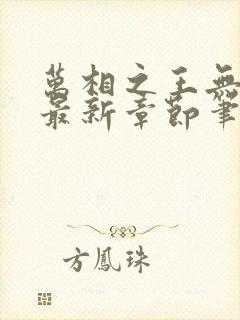 萬相之王無
最新章節筆
方鳳珠